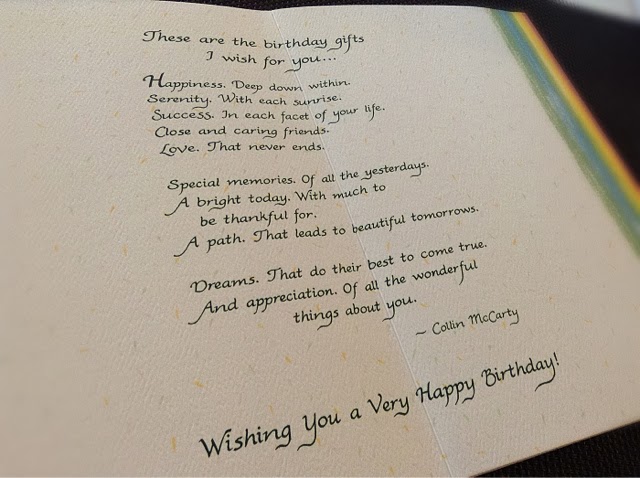 These are the birthday gifts
I wish for you...
Happiness. Deep down within.
Serenity. With each sunrise.
Success. In each facet of your life.
Close and caring friends.
Love. That never ends.
Special memories. Of all the yesterdays.
A bright today. With much to
be thankful for.
A path. That leads to beautiful tomorrows.
Dreams. That do their best to come true.
And appreciation. Of all the wonderful
things about you.
~ Collin McCarty
Wishing You a Very Happy Birthday!